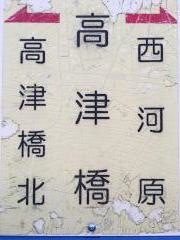 西河原
高津橋
高津橋北